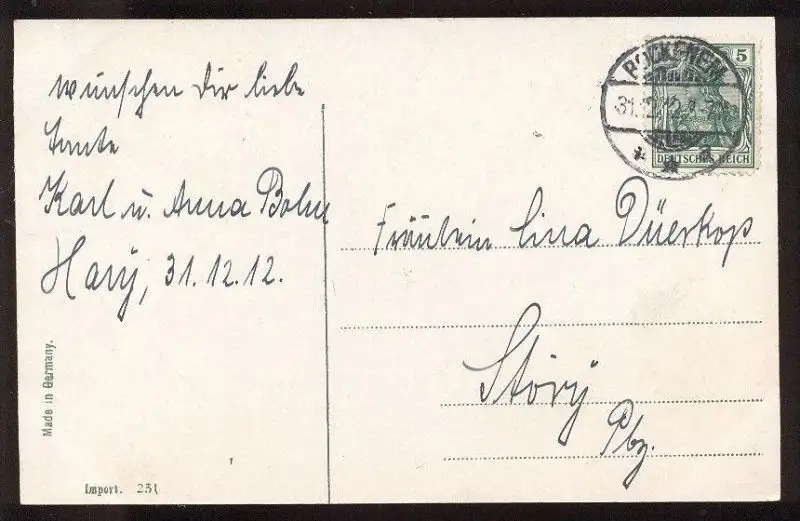 wünschen Dir liebe
Tante
Karl u. Anna Bohn
Harÿ, 31.12.12.
Made in Germany.
Import. 231
5
BOCKENEM
31.12.12.
DEUTSCHES REICH
Fräulein Lina Düerkop
Störÿ
Pbz.